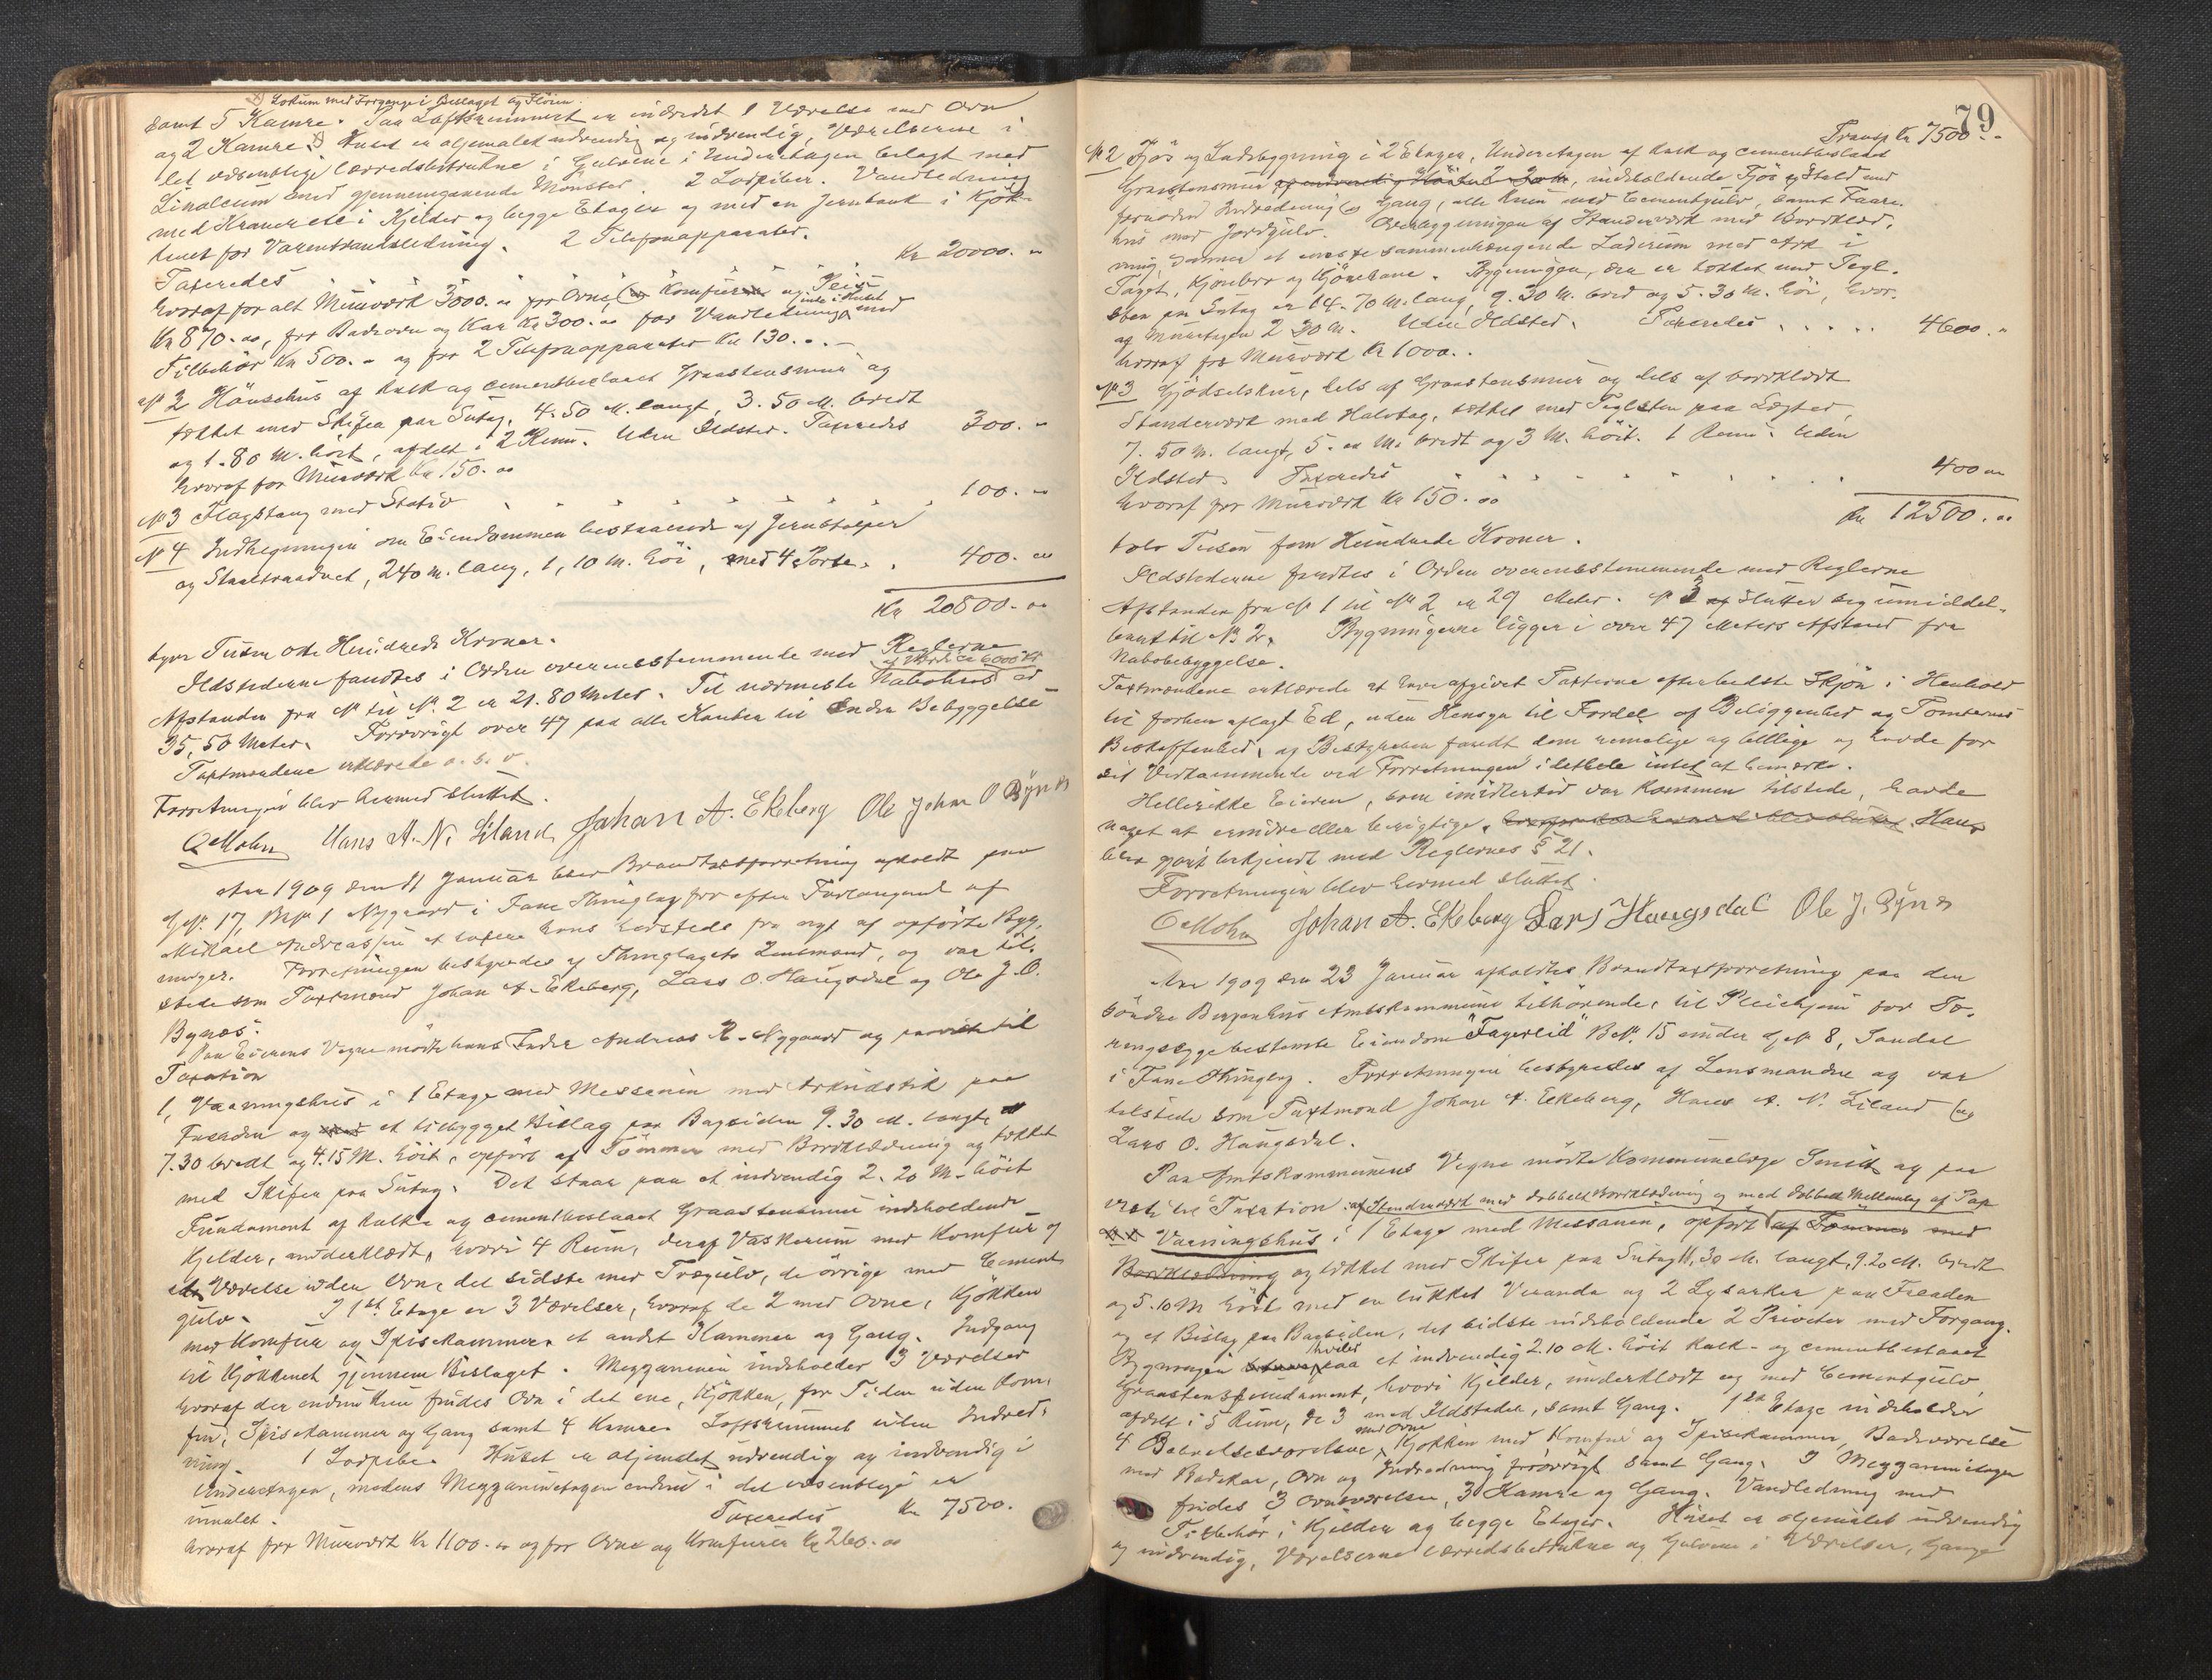 x) Lokum med Forgange i Beslaget og Fløien.
samt 5 Kamre. Paa Loftsrummet er indredet 1 Værelse med Ovn
og 2 Kamre x) Huset er oljemalet udvendig og indvendig, Værelserne i
det væsentlige lærredsbetrukne; Gulvene i Underetagen belagt med
Linoleum med gjennemgaaende Mønster. 2 Lodpiber. Vandledning
med Kraner etc i Kjelder og begge Etager og med en Jernbank i Kjøk-
kenet for Varmtvandsledning. 2 Telefonapparater.
Taxeredes . . . . . . . . Kr 20000. "
hvoraf for alt Murværk 3000.00 for Ovne, Komfurer og Peis
Kr 870.00, for Badeovn og Kar Kr 300.00 for Vandledning inde i Huset med
Tilbehør Kr 500.- og for 2 Telefonapparater Kr 130.-
№ 2 Hønsehus af kalk og cementbeslaaet Graastensmur og
tækket med Skifer paa Sutag, 4.50 M. langt, 3.50 M. bredt
og 1.80 M. høit, afdelt i 2 Rum. Uden Ildsted. Taxeredes 300.-
hvoraf for Murværk Kr 150.00
№ 3 Flagstang med Stativ . . . . . . . . 100.-
№ 4 Indhegningen om Eiendommen bestaaende af Jernstolper
og Staaltraadnet, 240 m. lang, 1,10 M. høi, med 4 Porte. . 400.00
Kr 20800.00
tyve Tusen otte Hundrede Kroner.
Ildstederne fandtes i Orden overensstemmende med Reglerne
af Værdi ca 6000 Kr
Afstanden fra № 1 til № 2 er 21.80 Meter. Til nærmeste Nabohus er
35,50 Meter. Forøvrigt over 47 paa alle Kanter til anden Bebyggelse
Taxtmændene erklærede o. s. v.
Forretningen blev hermed sluttet.
OMohn Hans A. N. Liland Johan A. Ekeberg Ole Johan O Bynes
Aar 1909 den 11 Januar blev Brandtaxtforretning afholdt paa
G.№ 17, B№ 1 Nygaard i Fane Thinglag for efter Forlangende af
Mikael Andreassen at taxere hans hersteds fra nyt af opførte Byg-
ninger. Forretningen bestyredes af Thinglagets Lensmand, og var til-
stede som Taxtmænd Johan A. Ekeberg, Lars O. Haugsdal og Ole J. O.
Bynes.
Paa Eierens Vegne mødte hans Fader Andreas R. Nygaard og paaviste til
Taxation
1, Vaaningshus i 1 Etage med Messanin med Arkudstik paa
Facaden og et tilbygget Bislag paa Bagsiden 9.30 M. langt
7.30 bredt og 4.15 M. høit, opført af Tømmer med Bordklædning og tækket
med Skifer paa Sutag. Det staar paa et indvendig 2.20 M. høit
Fundament af kalk og cementbeslaaet Graastensmur indeholdende
Kjelder, underklædt, hvori 4 Rum, deraf Vaskerum med Komfur og
et Værelse uden Ovn, det sidste med Trægulv, de øvrige med Cement
gulv. I 1ste Etage er 3 Værelser, hvoraf de 2 med Ovne, Kjøkken
med Komfur og Spisekammer, et andet Kammer og Gang. Indgang
til Kjøkkenet gjennem Bislaget. Mezzaninen indeholder 3 Værelser
hvoraf der endnu kun findes Ovn i det ene, Kjøkken, for Tiden uden Kom-
fur, Spisekammer og Gang samt 4 Kamre. Loftsrummet uden Indred-
ning 1 Lodpibe. Huset er oljemalet udvendig og indvendig i
Underetagen, medens Mezzaninetagen endnu i det væsentlige er
umalet. Taxeredes Kr 7500.
hvoraf for Murværk Kr 1100.00 og for Ovne og Komfurer Kr 260.00
79
Transp Kr 7500.-
№ 2 Fjøs og Ladebygning i 2 Etager, Underetagen af kalk og cementbeslaaet
Graastensmur af indvendig Høide 2.30 m, indeholdende Fjøs og Stald med
fornøden Indredning og Gang, alle Rum med Cementgulv, samt Faare-
hus med Jordgulv. Overbygningen af Stenderværk med Bordklæd-
ning danner et eneste sammenhængende Laderum med Ark i
Taget, Kjørebro og Kjørebane. Bygningen, der er tækket med Tegl-
sten paa Sutag er 14.70 M. lang, 9.30 M. bred og 5.30 M. høi, hvor-
af Muretagen 2.30 M. Uden Ildsted. Taxeredes . . . . . 4600.-
hvoraf for Murværk Kr 1000..
№ 3 Gjødselskur, dels af Graastensmur og dels af bordklædt
Stenderværk med Halvtag, tækket med Teglsten paa Lægter,
7.50 m. langt, 5.00 M. bredt og 3 M. høit. 1 Rum. Uden
Ildsted. Taxeredes . . . . . . . . 400 00
hvoraf for Murværk Kr 150.00
Kr 12500.00
tolv Tusen fem Hundrede Kroner.
Ildstederne fandtes i Orden overensstemmende med Reglerne
Afstanden fra № 1 til № 2 er 29 Meter. № 3 slutter sig umiddel-
bart til № 2. Bygningerne ligger i over 47 Meters Afstand fra
Nabobebyggelse.
Taxtmændene erklærede at have afgivet Taxterne efter bedste Skjøn i Henhold
til forhen aflagt Ed, uden Hensyn til Fordel af Beliggenhed og Tomternes
Beskaffenhed, og Bestyreren fandt dem rimelige og billige og havde for
sit Vedkommende ved Forretningen i det hele intet at bemærke.
Heller ikke Eieren, som imidlertid var kommen tilstede, havde
noget at erindre eller berigtige. Forretningen hermed blev sluttet. Han
blev gjort bekjendt med Reglernes § 21.
Forretningen blev hermed sluttet.
OMohn Johan A. Ekeberg Lars Haugsdal Ole J. Bynes
Aar 1909 den 23 Januar afholdtes Brandtaxtforretning paa den
Søndre Bergenhus Amtskommune tilhørende, til Pleiehjem for Tu-
rengsyge bestemte Eiendom "Fagerlid" B.№ 15 under G.№ 8, Sandal
i Fane Thinglag. Forretningen bestyredes af Lensmanden og var
tilstede som Taxtmænd Johan A. Ekeberg, Hans A. N. Liland og
Lars O. Haugsdal.
Paa Amtskommunens Vegne mødte Kommunelæge Smith og paa
viste til Taxation af Stenderværk med dobbelt Bordklædning og med dobbelt Mellemlag af Pap
Vaaningshus i 1 Etage med Messanin, opført af Tømmer med
Bordklædning og tækket med Skifer paa Sutag 11.30 M. langt, 9.20 M. bredt
og 5.10 M høit med en lukket Veranda og 2 Lysarker paa Facaden
og et Bislag paa Bagsiden, det sidste indeholdende 2 Priveter med Forgang.
Bygningen hviler paa et indvendig 2.10 M. høit kalk- og cementbeslaaet
Graastensfundament, hvori Kjelder, underklædt og med Cementgulv
afdelt i 5 Rum, de 3 med Ildsteder, samt Gang. 1ste Etage indeholder
4 Beboelsesværelser med Ovne, Kjøkken med Komfur og Spisekammer, Badeværelse
med Badekar, Ovn og Indredning forøvrigt samt Gang. I Mezzaninetagen
findes 3 Ovnsværelser, 3 Kamre og Gang. Vandledning med
Tilbehør i Kjelder og begge Etager. Huset er oljemalet udvendig
og indvendig, Værelserne lærredsbetrukne og Gulvene i Værelser, Gange